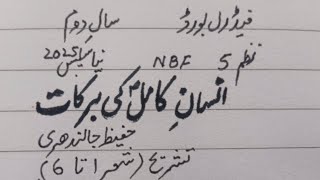 فیڈرل بورڈ سال دوم
نظم 5 NBF نیا سلیبس 2025
انسانِ کامل کی برکات
حفیظ جالندھری
تشریح (شعر 1 تا 6)